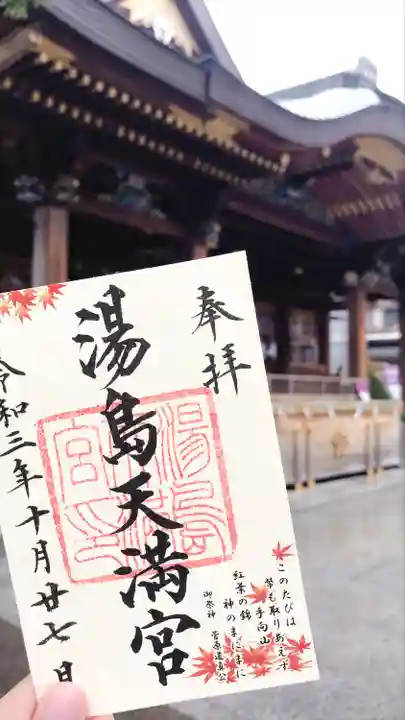 奉拝
湯島天満宮
令和三年十月廿七日
湯島
天満
宮印
このたびは
幣も取りあえず
手向山
紅葉の錦
神のまにまに
御祭神 菅原道真公